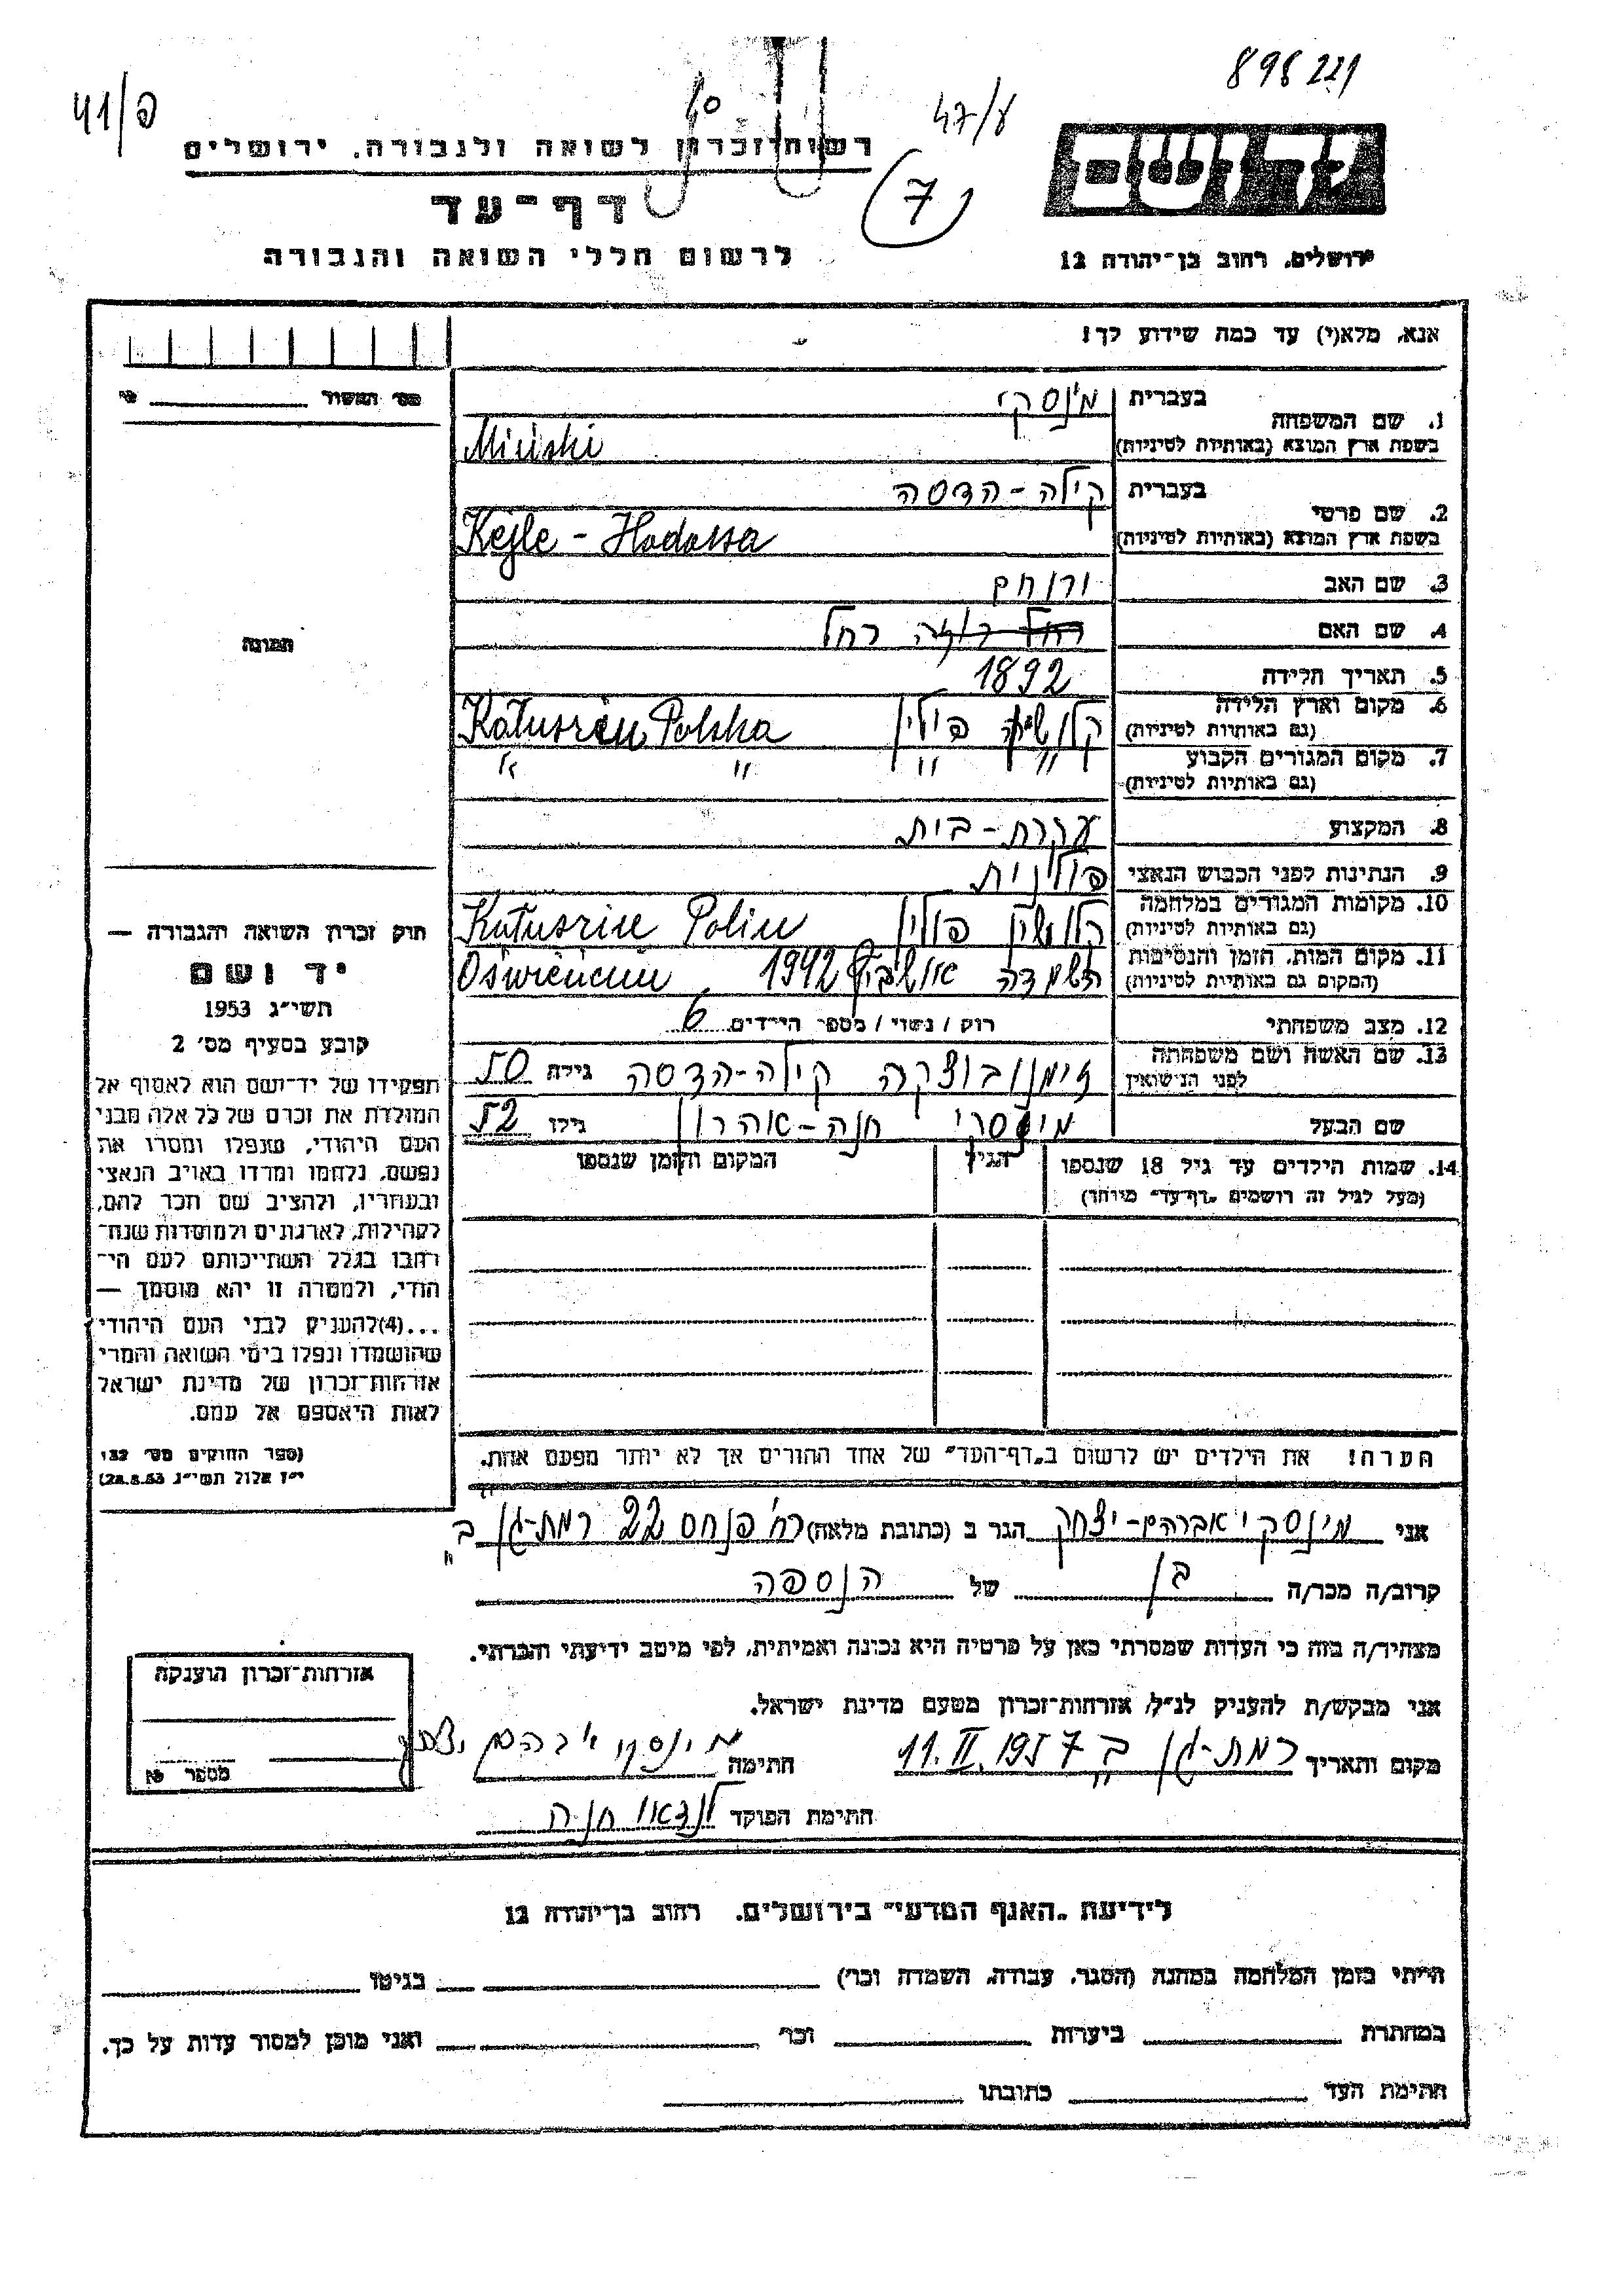 898221
41/פ
47/ע
רשות־זכרון לשואה ולגבורה, ירושלים
דף־עד
(7)
לרשום חללי השואה והגבורה
ירושלים, רחוב בן־יהודה 12
אנא, מלא(י) עד כמה שידוע לך!
מס׳ האשור
1. שם המשפחה בעברית מינסקי
בשפת ארץ המוצא (באותיות לטיניות) Minski
2. שם פרטי בעברית קילה-הדסה
בשפת ארץ המוצא (באותיות לטיניות) Kejle - Hadassa
3. שם האב ירוחם
4. שם האם רחל
5. תאריך הלידה 1892
6. מקום וארץ הלידה
(גם באותיות לטיניות) פולין Kałuszin Polska
7. מקום המגורים הקבוע " " " "
(גם באותיות לטיניות)
8. המקצוע עקרת-בית
9. הנתינות לפני הכבוש הנאצי פולנית
10. מקומות המגורים במלחמה
(גם באותיות לטיניות) קלושין פולין Kałuszin Polin
11. מקום המות, הזמן והנסיבות
(המקום גם באותיות לטיניות) השמדה אושביץ 1942 Oświencim
12. מצב משפחתי רוק / נשוי / מספר הילדים 6
13. שם האשה ושם משפחתה
לפני הנישואין קילה-הדסה גילה 50
שם הבעל מינסקי חנה-אהרון גילו 52
14. שמות הילדים עד גיל 18 שנספו הגיל המקום והזמן שנספו
(מעל לגיל זה רושמים „דף־עד״ מיוחד)
הערה! את הילדים יש לרשום ב„דף־העד״ של אחד ההורים אך לא יותר מפעם אחת.
תמונה
חוק זכרון השואה והגבורה —
יד ושם
תשי״ג 1953
קובע בסעיף מס׳ 2
תפקידו של יד־ושם הוא לאסוף אל
המולדת את זכרם של כל אלה מבני
העם היהודי, שנפלו ומסרו את
נפשם, נלחמו ומרדו באויב הנאצי
ובעוזריו, ולהציב שם וזכר להם,
לקהילות, לארגונים ולמוסדות שנח־
רבו בגלל השתייכותם לעם הי־
הודי, ולמטרה זו יהא מוסמך —
...(4)להעניק לבני העם היהודי
שהושמדו ונפלו בימי השואה והמרי
אזרחות־זכרון של מדינת ישראל
לאות היאספם אל עמם.
(ספר החוקים מס׳ 132
י״ז אלול תשי״ג 28.8.53)
אני מינסקי אברהם-יצחק הגר ב (כתובת מלאה) רח׳ פנחס 22 רמת-גן ב
קרוב/ה מכר/ה בן של הנספה
מצהיר/ה בזה כי העדות שמסרתי כאן על פרטיה היא נכונה ואמיתית, לפי מיטב ידיעתי והכרתי.
אני מבקש/ת להעניק לנ״ל, אזרחות־זכרון מטעם מדינת ישראל.
מקום ותאריך רמת-גן ב 11.II.1957 חתימה מינסקי אברהם יצחק
חתימת הפוקד לנדאו חנה
אזרחות־זכרון הוענקה
מספר
לידיעת „האגף המדעי״ בירושלים, רחוב בן־יהודה 12
הייתי בזמן המלחמה במחנה (הסגר, עבודה, השמדה וכו׳) בגיטו
במחתרת ביערות וכו׳ ואני מוכן למסור עדות על כך.
חתימת העד כתובתו